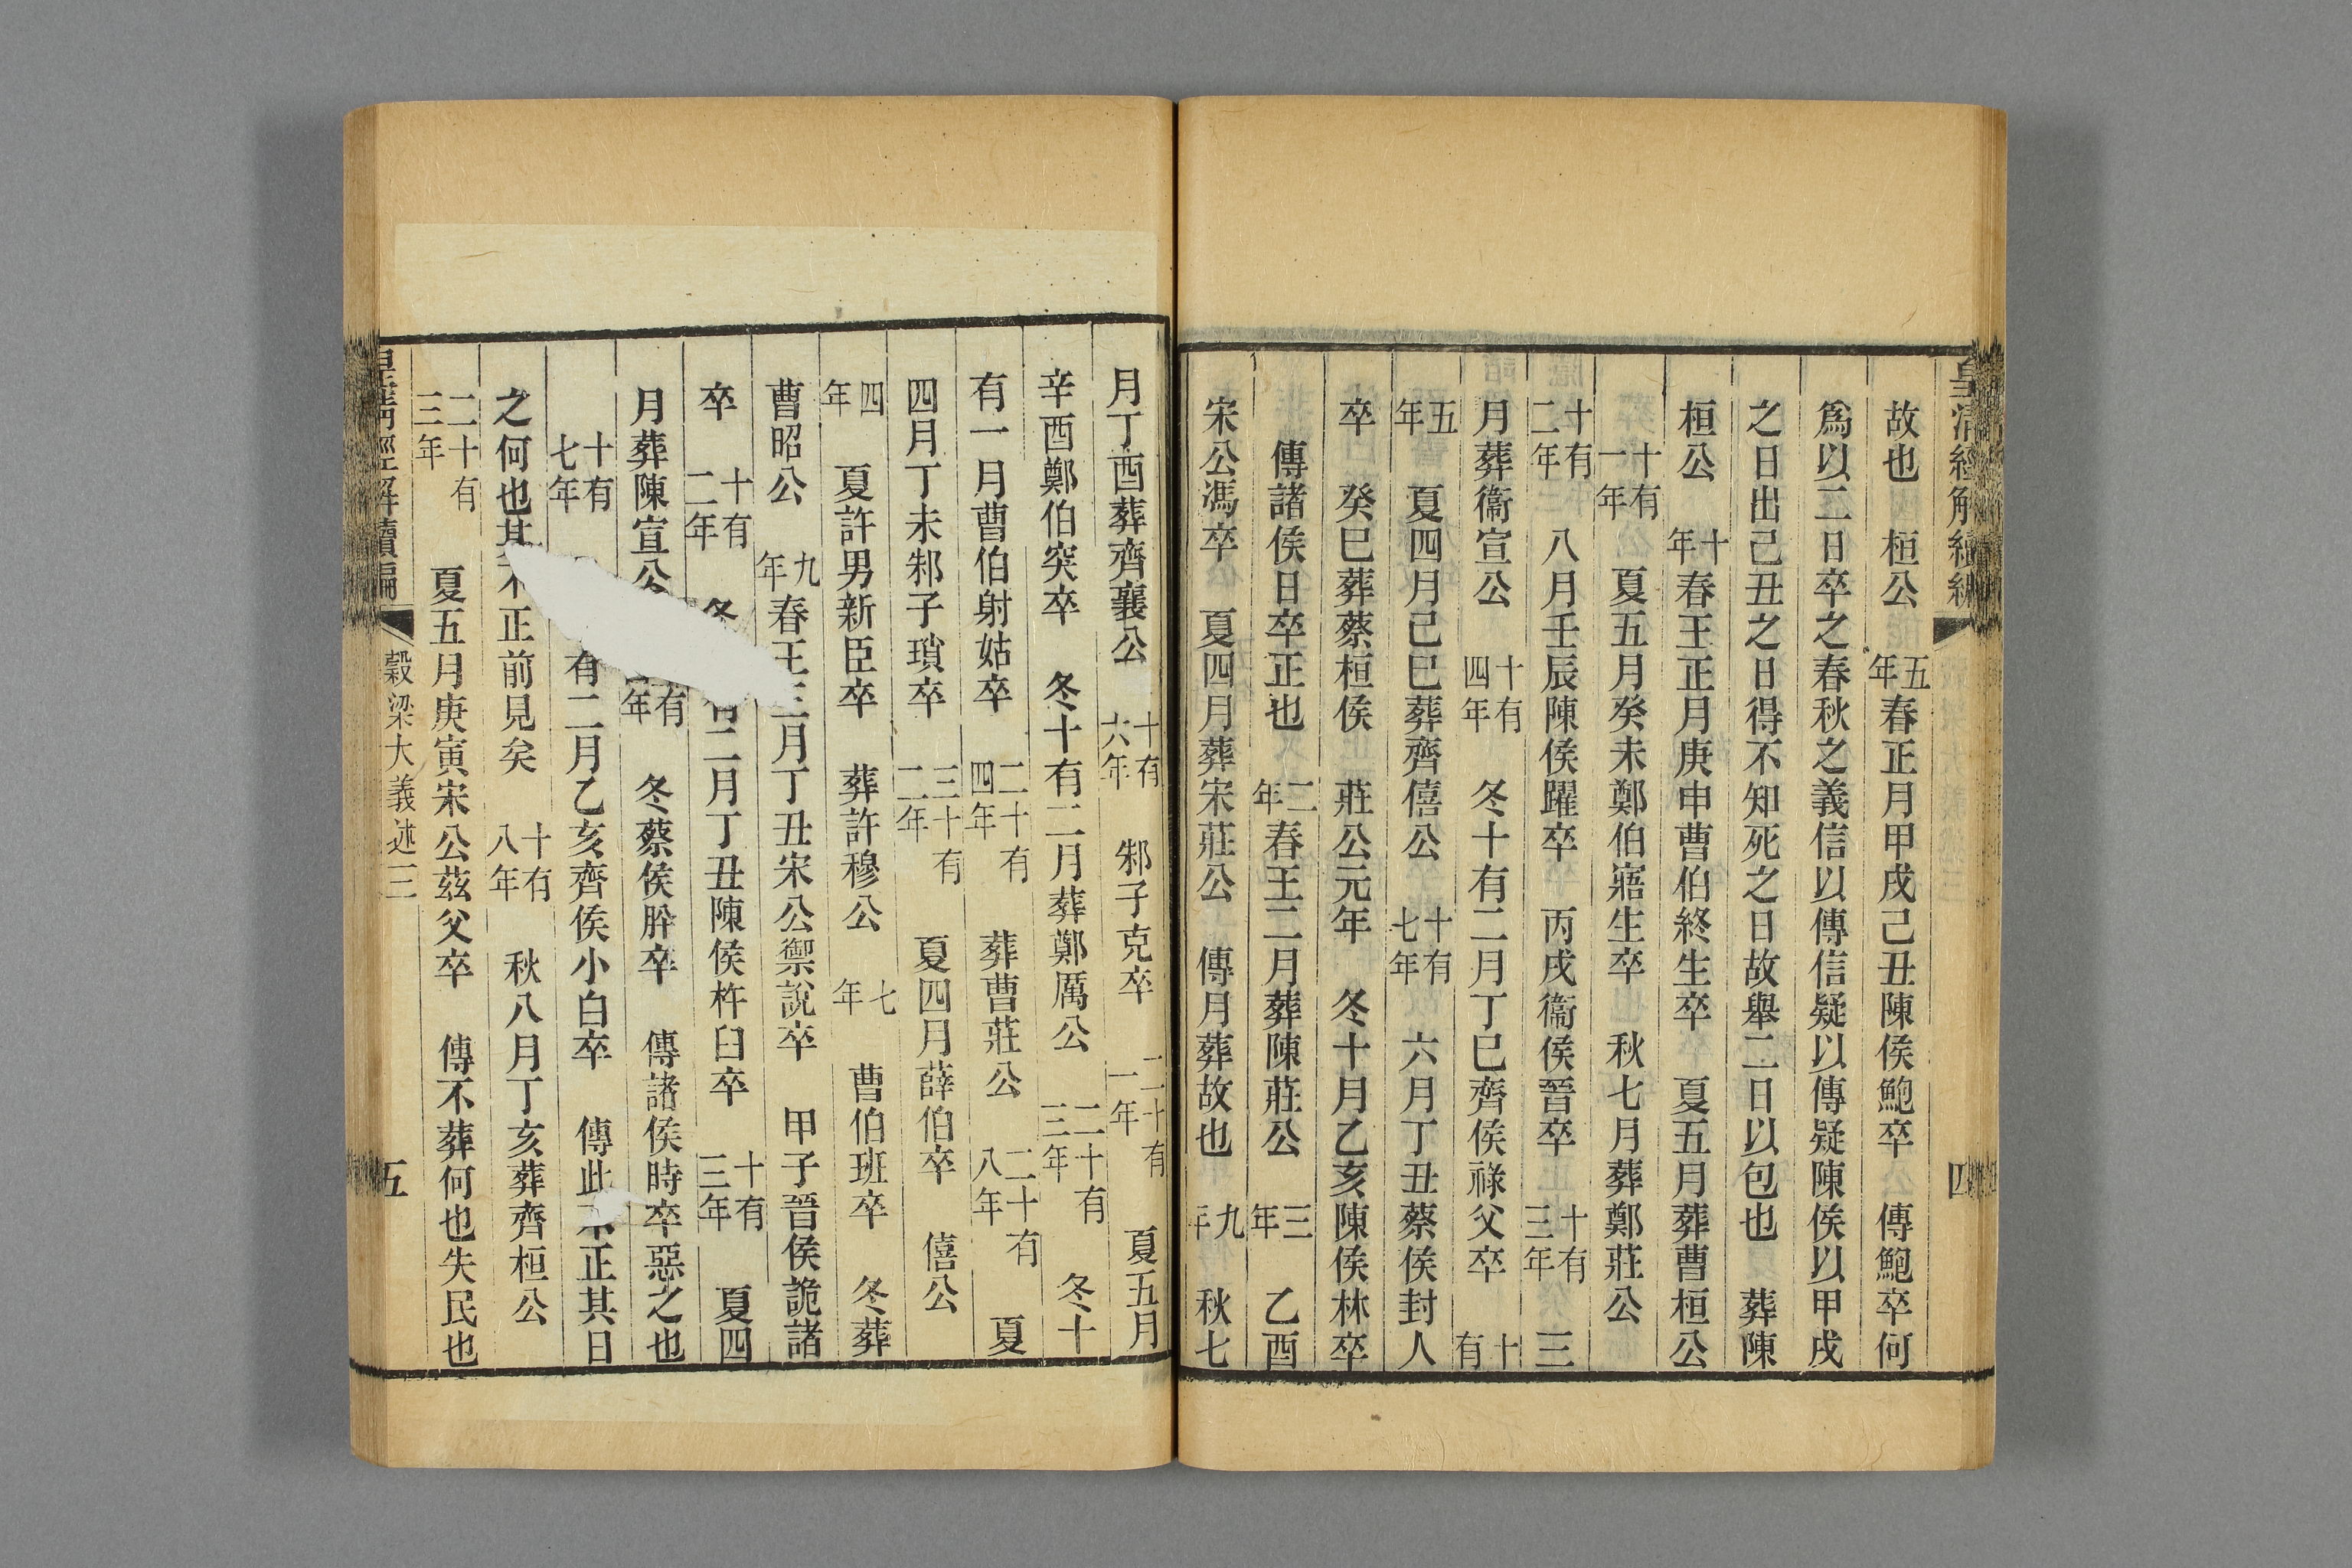 皇清經解續編
四
故也　桓公　五年春正月甲戌己丑陳侯鮑卒　傳鮑卒何
爲以二日卒之春秋之義信以傳信疑以傳疑陳侯以甲戌
之日出己丑之日得不知死之日故舉二日以包也　葬陳
桓公　十年春王正月庚申曹伯終生卒　夏五月葬曹桓公
十有一年　夏五月癸未鄭伯寤生卒　秋七月葬鄭莊公
十有二年　八月壬辰陳侯躍卒　丙戌衞侯晉卒　十有三年　三
月葬衞宣公　十有四年　冬十有二月丁巳齊侯祿父卒　十有
五年　夏四月己巳葬齊僖公　十有七年　六月丁丑蔡侯封人
卒　癸巳葬蔡桓侯　莊公元年　冬十月乙亥陳侯林卒
傳諸侯日卒正也　二年春王二月葬陳莊公　三年　乙酉
宋公馮卒　夏四月葬宋莊公　傳月葬故也　九年　秋七
月丁酉葬齊襄公　十有六年　邾子克卒　二十有一年　夏五月
辛酉鄭伯突卒　冬十有二月葬鄭厲公　二十有三年　冬十
有一月曹伯射姑卒　二十有四年　葬曹莊公　二十有八年　夏
四月丁未邾子瑣卒　三十有二年　夏四月薛伯卒　僖公
四年　夏許男新臣卒　葬許穆公　七年　曹伯班卒　冬葬
曹昭公　九年春王三月丁丑宋公禦說卒　甲子晉侯詭諸
卒　十有二年　冬有二月丁丑陳侯杵臼卒　十有三年　夏四
月葬陳宣公　有年　冬蔡侯肸卒　傳諸侯時卒惡之也
十有七年　有二月乙亥齊侯小白卒　傳此不正其日
之何也其不正前見矣　十有八年　秋八月丁亥葬齊桓公
二十有三年　夏五月庚寅宋公茲父卒　傳不葬何也失民也
皇淸經解續編
穀梁大義述三
五